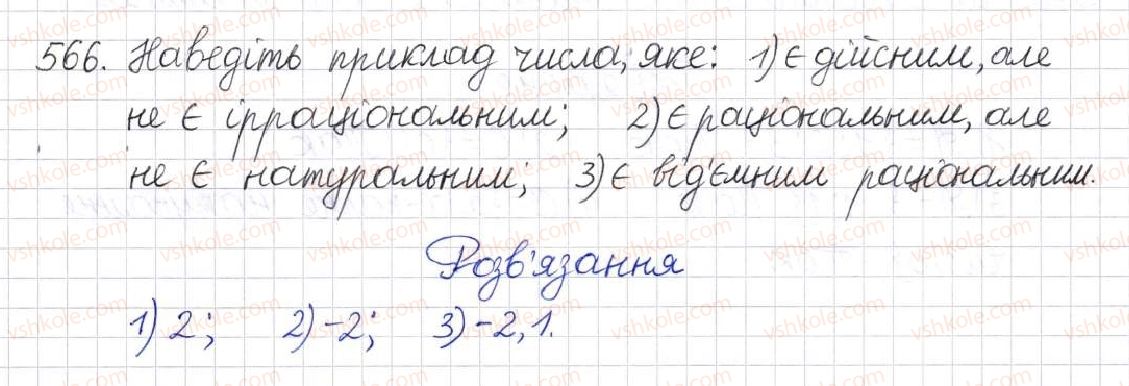 566. Наведіть приклад числа, яке: 1) є дійсним, але
не є ірраціональним; 2) є раціональним, але
не є натуральним; 3) є від'ємним раціональним.
Розв'язання
1) 2; 2) -2; 3) -2,1.